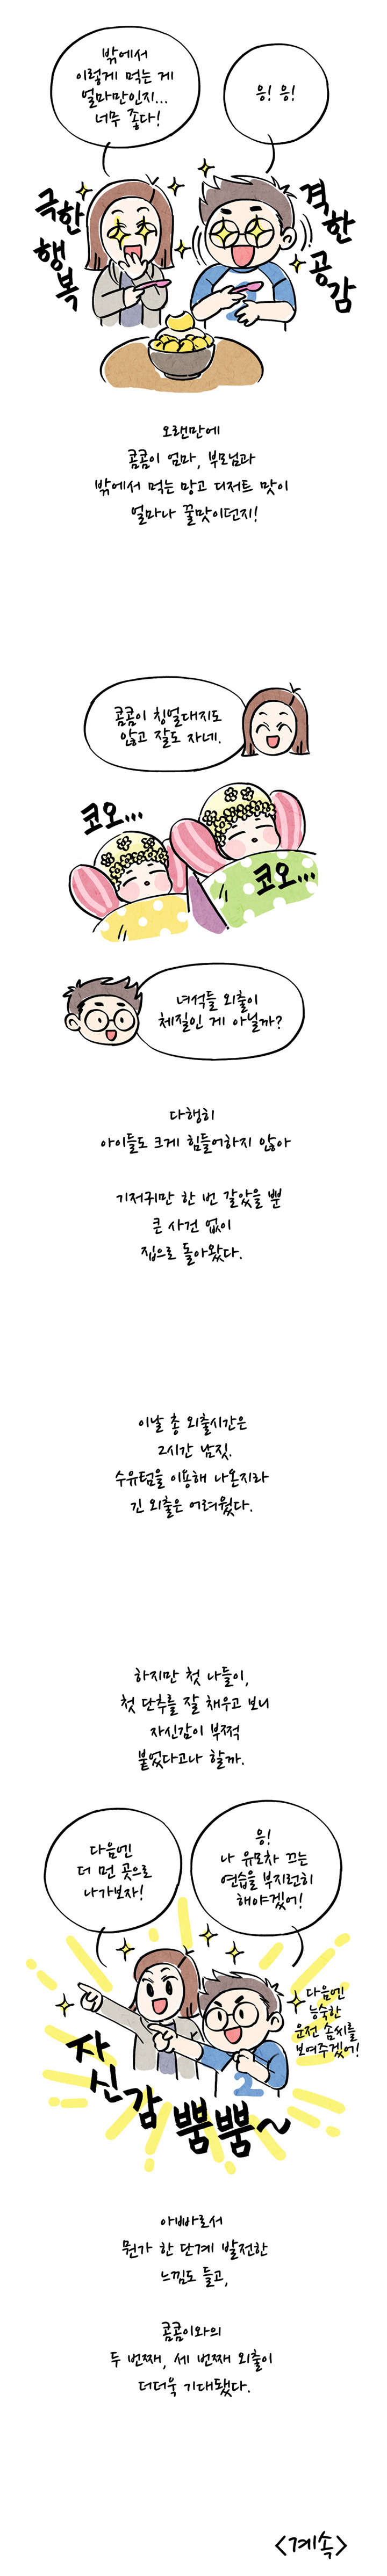 밖에서
이렇게 먹는 게
얼마만인지...
너무 좋다!
응! 응!
극한
행복
격한
공감
오랜만에
콤콤이 엄마, 부모님과
밖에서 먹는 망고 디저트 맛이
얼마나 꿀맛이던지!
콤콤이 칭얼대지도
않고 잘도 자네.
코오...
코오...
녀석들 외출이
체질인 게 아닐까?
다행히
아이들도 크게 힘들어하지 않아
기저귀만 한 번 갈았을 뿐
큰 사건 없이
집으로 돌아왔다.
이날 총 외출시간은
2시간 남짓.
수유텀을 이용해 나온지라
긴 외출은 어려웠다.
하지만 첫 나들이,
첫 단추를 잘 채우고 보니
자신감이 부쩍
붙었다고나 할까.
다음엔
더 먼 곳으로
나가보자!
응!
나 유모차 끄는
연습을 부지런히
해야겠어!
다음엔
능숙한
운전 솜씨를
보여주겠어!
자신감 뿜뿜~
2
아빠로서
뭔가 한 단계 발전한
느낌도 들고,
콤콤이와의
두 번째, 세 번째 외출이
더더욱 기대됐다.
<계속>